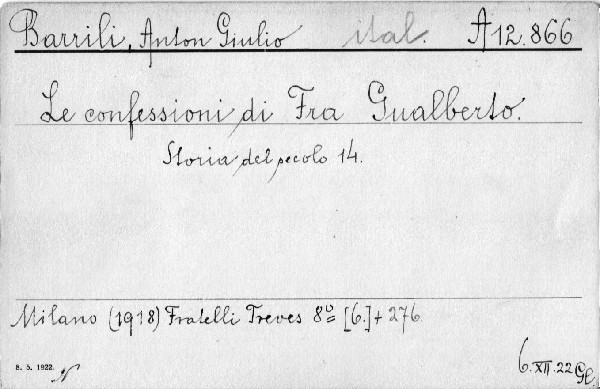 Barrili, Anton Giulio ital. A 12.866
Le confessioni di Fra Gualberto.
Storia del secolo 14.
Milano (1918) Fratelli Treves 8º [6.] + 276.
8. 5. 1922.
6.XII.22 Gl.